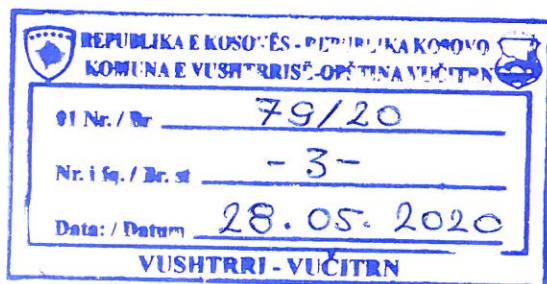 REPUBLIKA E KOSOVËS - REPUBLIKA KOSOVO
KOMUNA E VUSHTRRISË-OPŠTINA VUČITRN
01 Nr. / Br 79/20
Nr. i fq. / Br. st - 3 -
Data: / Datum 28.05.2020
VUSHTRRI - VUČITRN